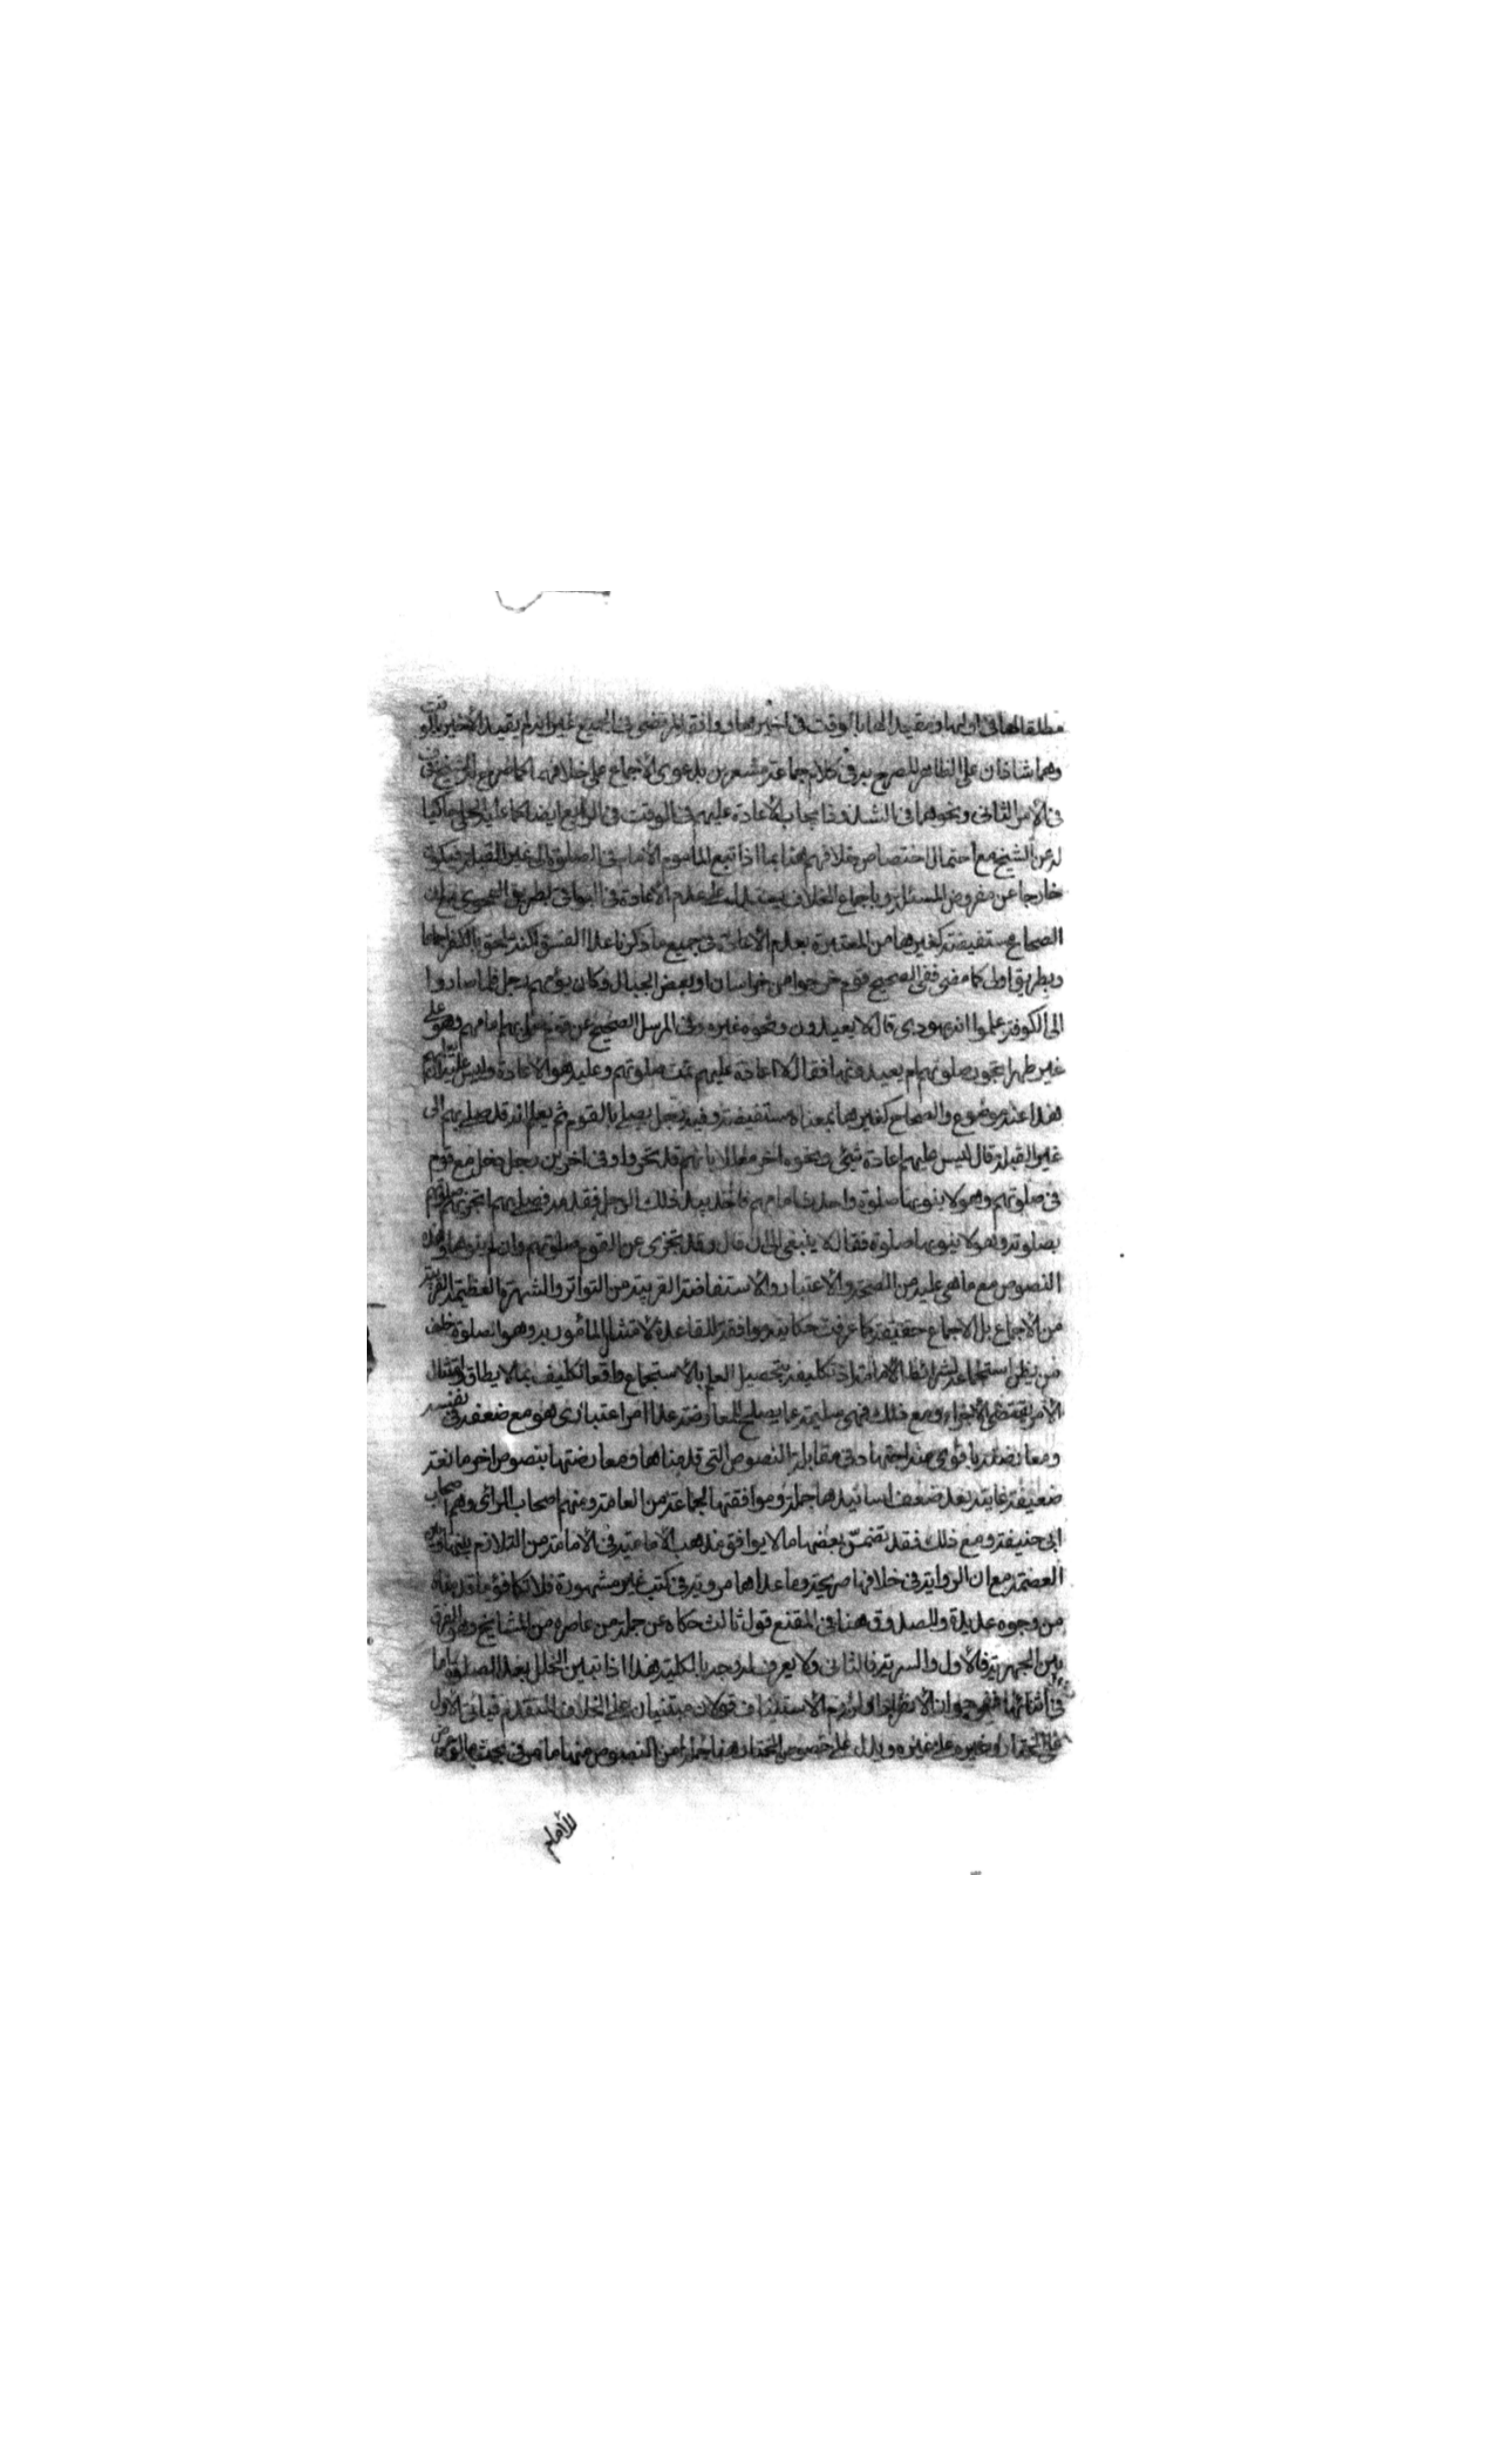 مطلقا لها فى اولها ومقيدا لها بالوقت فى اخيرها ووافقه المرتضى فى الجميع غير انه لم يقيد الاخير بالوقت
وهما شاذان على الظاهر المصرح به فى كلام جماعة مشعرين بدعوى الاجماع على خلافهما كما صرح به الشيخ فى ف
فى الامر الثانى ونحوهما فى الشذوذ ايجاب الاعادة عليهم فى الوقت فى الرابع ايضا كما عليه الحلى حاكيا
له عن الشيخ مع احتمال اختصاص خلافهم هذا بما اذا تبع الماموم الامام فى الصلوة الى غير القبلة فيكون
خارجا عن مفروض المسئلة وباجماع الخلاف على عدم الاعادة فى البواقى بطريق الفحوى مع ان
الصحاح مستفيضة كغيرها من المعتبرة بعدم الاعادة فى جميع ما ذكرنا عدا الفسق لكنه لحق بالكفر اجماعا
وبطريق اولى كما مضى ففى الصحيح قوم خرجوا من خراسان او بعض الجبال وكان يؤمهم رجل فلما صاروا
الى الكوفة علموا انه يهودى قال لا يعيدون ونحوه غيره وفى المرسل الصحيح عن قوم صلى بهم امامهم وهو على
غير طهر اتجوز صلوتهم ام يعيدونها فقال لا اعادة عليهم تمت صلوتهم وعليه هو الاعادة وليس عليه ان يعلمهم
هذا عنه موضوع والصحاح كغيرها بمعناه مستفيضة وفيه رجل يصلى بالقوم ثم يعلم انه قد صلى بهم الى
غير القبلة قال ليس عليهم اعادة شئ ونحوه اخر معللا بانهم قد تحروا وفى اخرين رجل دخل مع قوم
فى صلوتهم وهو لا ينويها صلوة واحدث امامهم فاخذ بيد ذلك الرجل فقدمه فصلى بهم اتجزيهم صلوتهم
بصلوته وهو لا ينويها صلوة فقال لا ينبغى الى ان قال وقد تجزى عن القوم صلوتهم وان لم ينوها وهذه
النصوص مع ما هى عليه من الصحة والاعتبار والاستفاضة القريبة من التواتر والشهرة العظيمة القريبة
من الاجماع بل الاجماع حقيقة كما عرفت حكايته موافقة للقاعدة لامتثال المأمور به وهو الصلوة خلف
من يظن استجماعه لشرائط الامامة اذ تكليفه بتحصيل العلم بالاستجماع واقعا تكليف بما لا يطاق وامتثال
الامر يقتضى الاجزاء ومع ذلك فهى سليمة عما يصلح للمعارضة عدا امر اعتبارى هو مع ضعفه فى نفسه
ومعارضته باقوى منه اجتهاد فى مقابلة النصوص التى قدمناها ومعارضتها بنصوص اخر مانعة
ضعيفة غايته بعد ضعف اسانيدها جملة وموافقتها لجماعة من العامة ومنهم اصحاب الراى وهم اصحاب
ابى حنيفة ومع ذلك فقد تضمن بعضها ما لا يوافق مذهب الامامية فى الامامة من التلازم بينها وبين
العصمة مع ان الرواية فى خلافها صريحة وما عداها مروية فى كتب غير مشهورة فلا تكافؤ ما قدمناه
من وجوه عديدة وللصدوق هنا فى المقنع قول ثالث حكاه عن جملة من عاصره من المشايخ وهو الفرق
بين الجهرية فالاول والسرية فالثانى ولا يعرف له وجه بالكلية هذا اذا تبين الخلل بعد الصلوة واما
فى اثنائها ففى جواز الانفراد او لزوم الاستيناف قولان مبتنيان على الخلاف المتقدم فيأتى الاول
على المختار وغيره على غيره ويدل على خصوص المختار هنا جملة من النصوص منها ما مر فى بحث
للامام